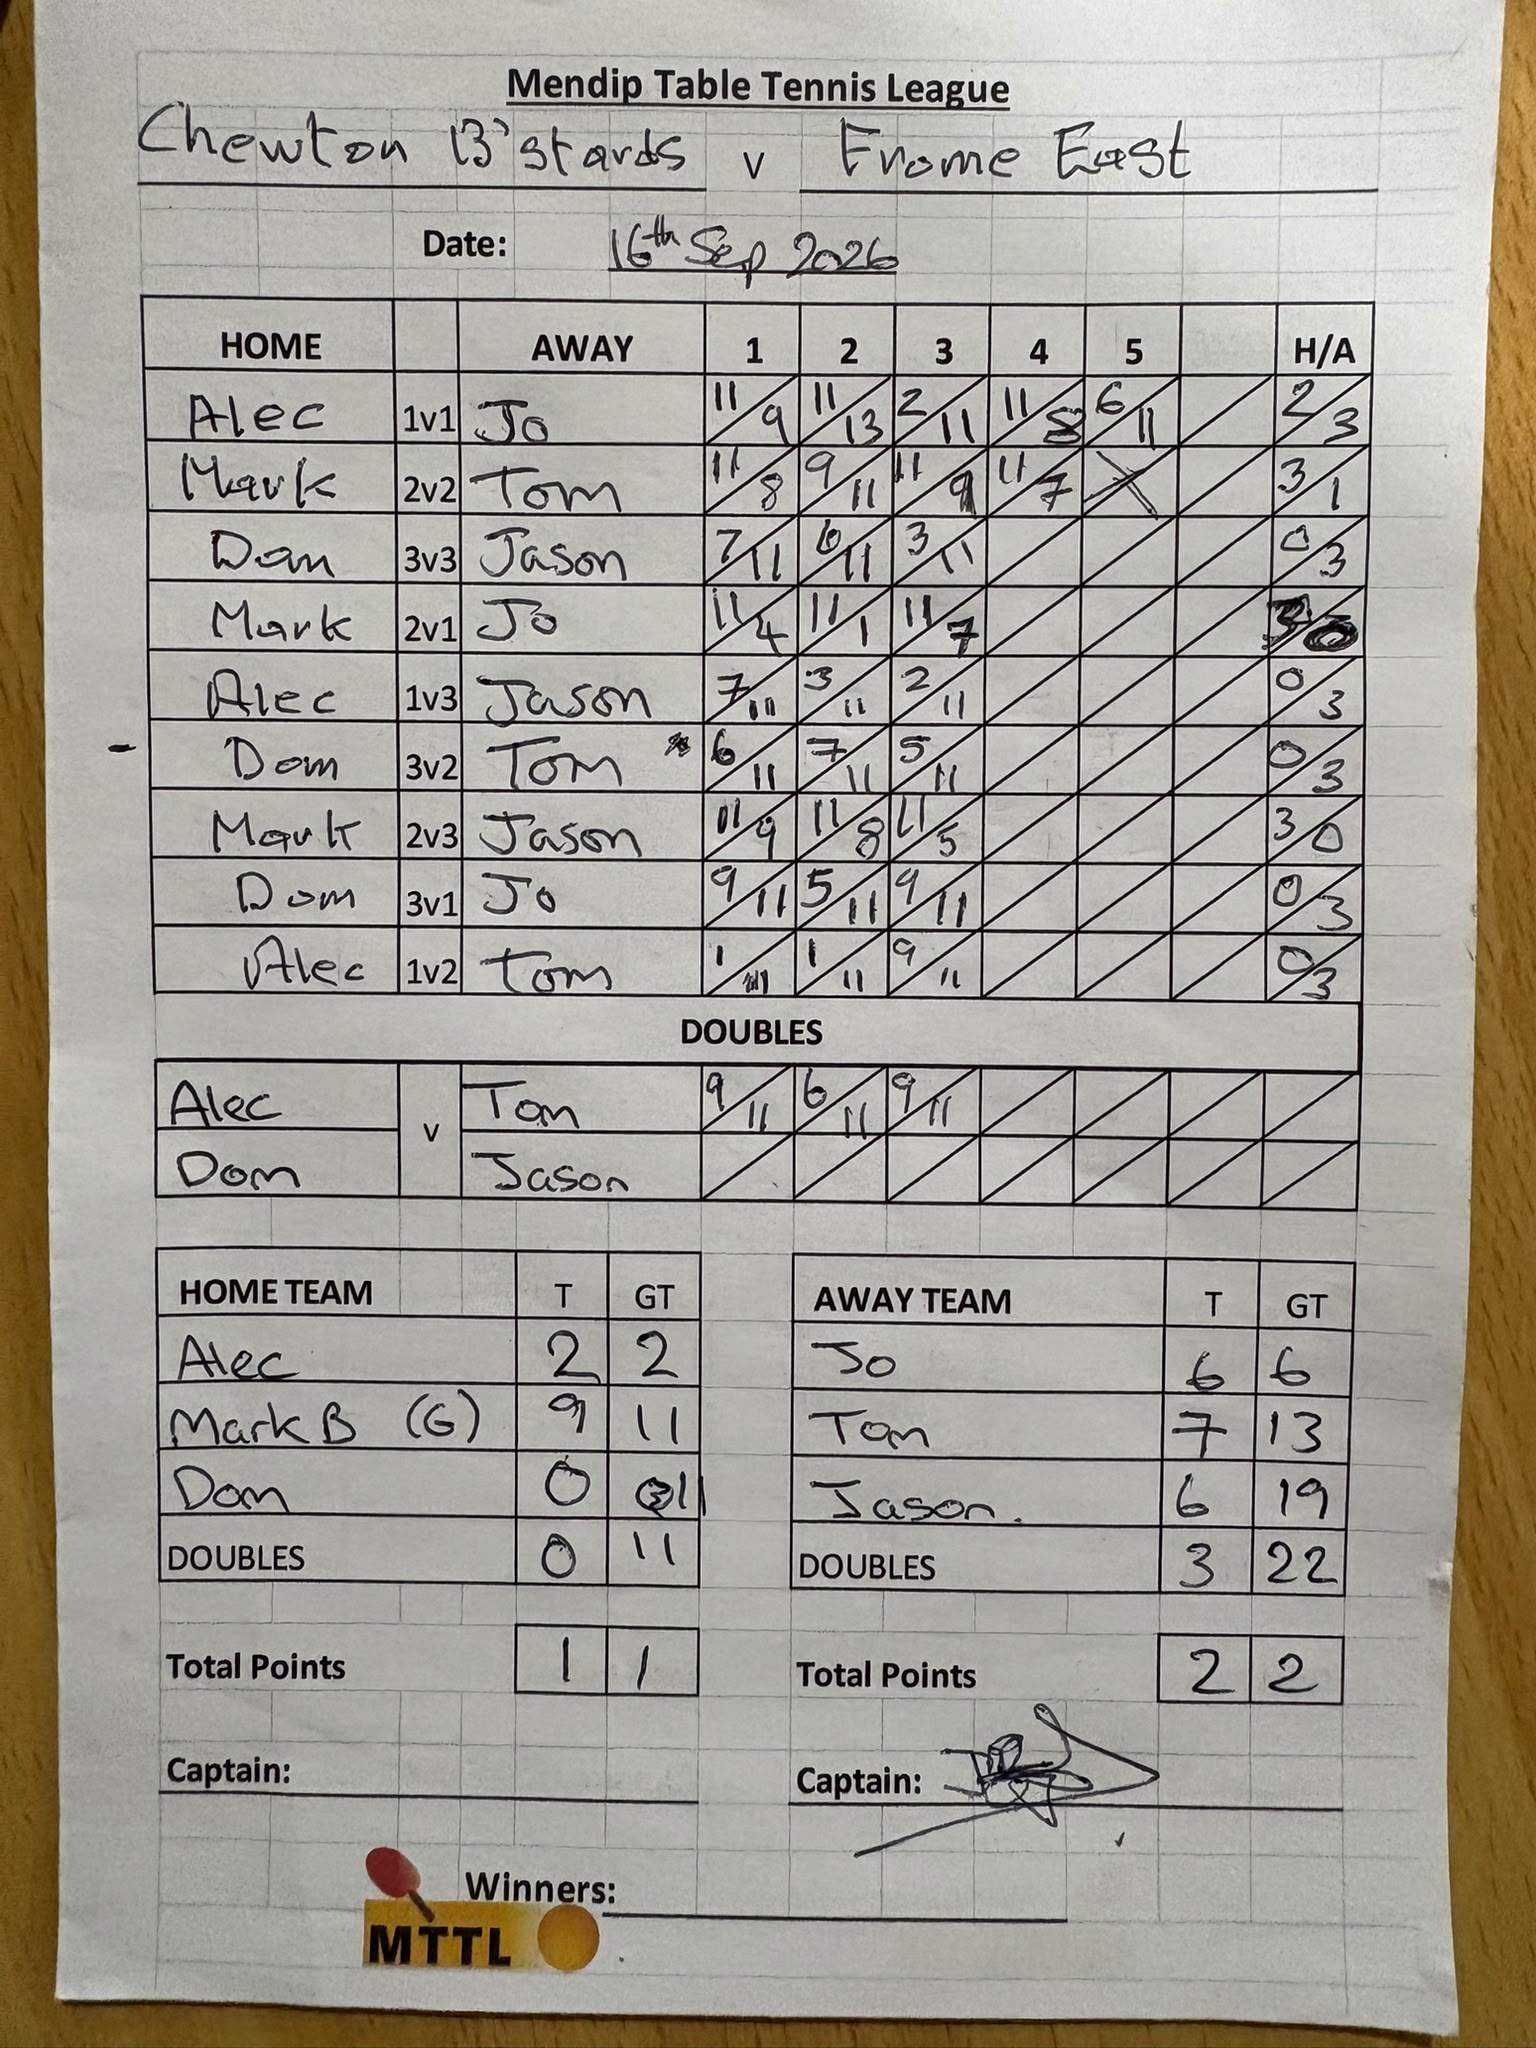 Mendip Table Tennis League
Chewton B'stards v Frome East
Date: 16th Sep 2026
HOME AWAY 1 2 3 4 5 H/A
Alec 1v1 Jo 11/9 11/13 2/11 11/8 6/11 2/3
Mark 2v2 Tom 11/8 9/11 11/9 11/7 X 3/1
Dom 3v3 Jason 7/11 6/11 3/11 0/3
Mark 2v1 Jo 11/4 11/1 11/7 3/0
Alec 1v3 Jason 7/11 3/11 2/11 0/3
- Dom 3v2 Tom 6/11 7/11 5/11 0/3
Mark 2v3 Jason 11/9 11/8 11/5 3/0
Dom 3v1 Jo 9/11 5/11 9/11 0/3
Alec 1v2 Tom 1/11 1/11 9/11 0/3
DOUBLES
Alec v Tom 9/11 6/11 9/11
Dom Jason
HOME TEAM T GT AWAY TEAM T GT
Alec 2 2 Jo 6 6
Mark B (G) 9 11 Tom 7 13
Dom 0 11 Jason. 6 19
DOUBLES 0 11 DOUBLES 3 22
Total Points 1 1 Total Points 2 2
Captain: Captain:
Winners:
MTTL